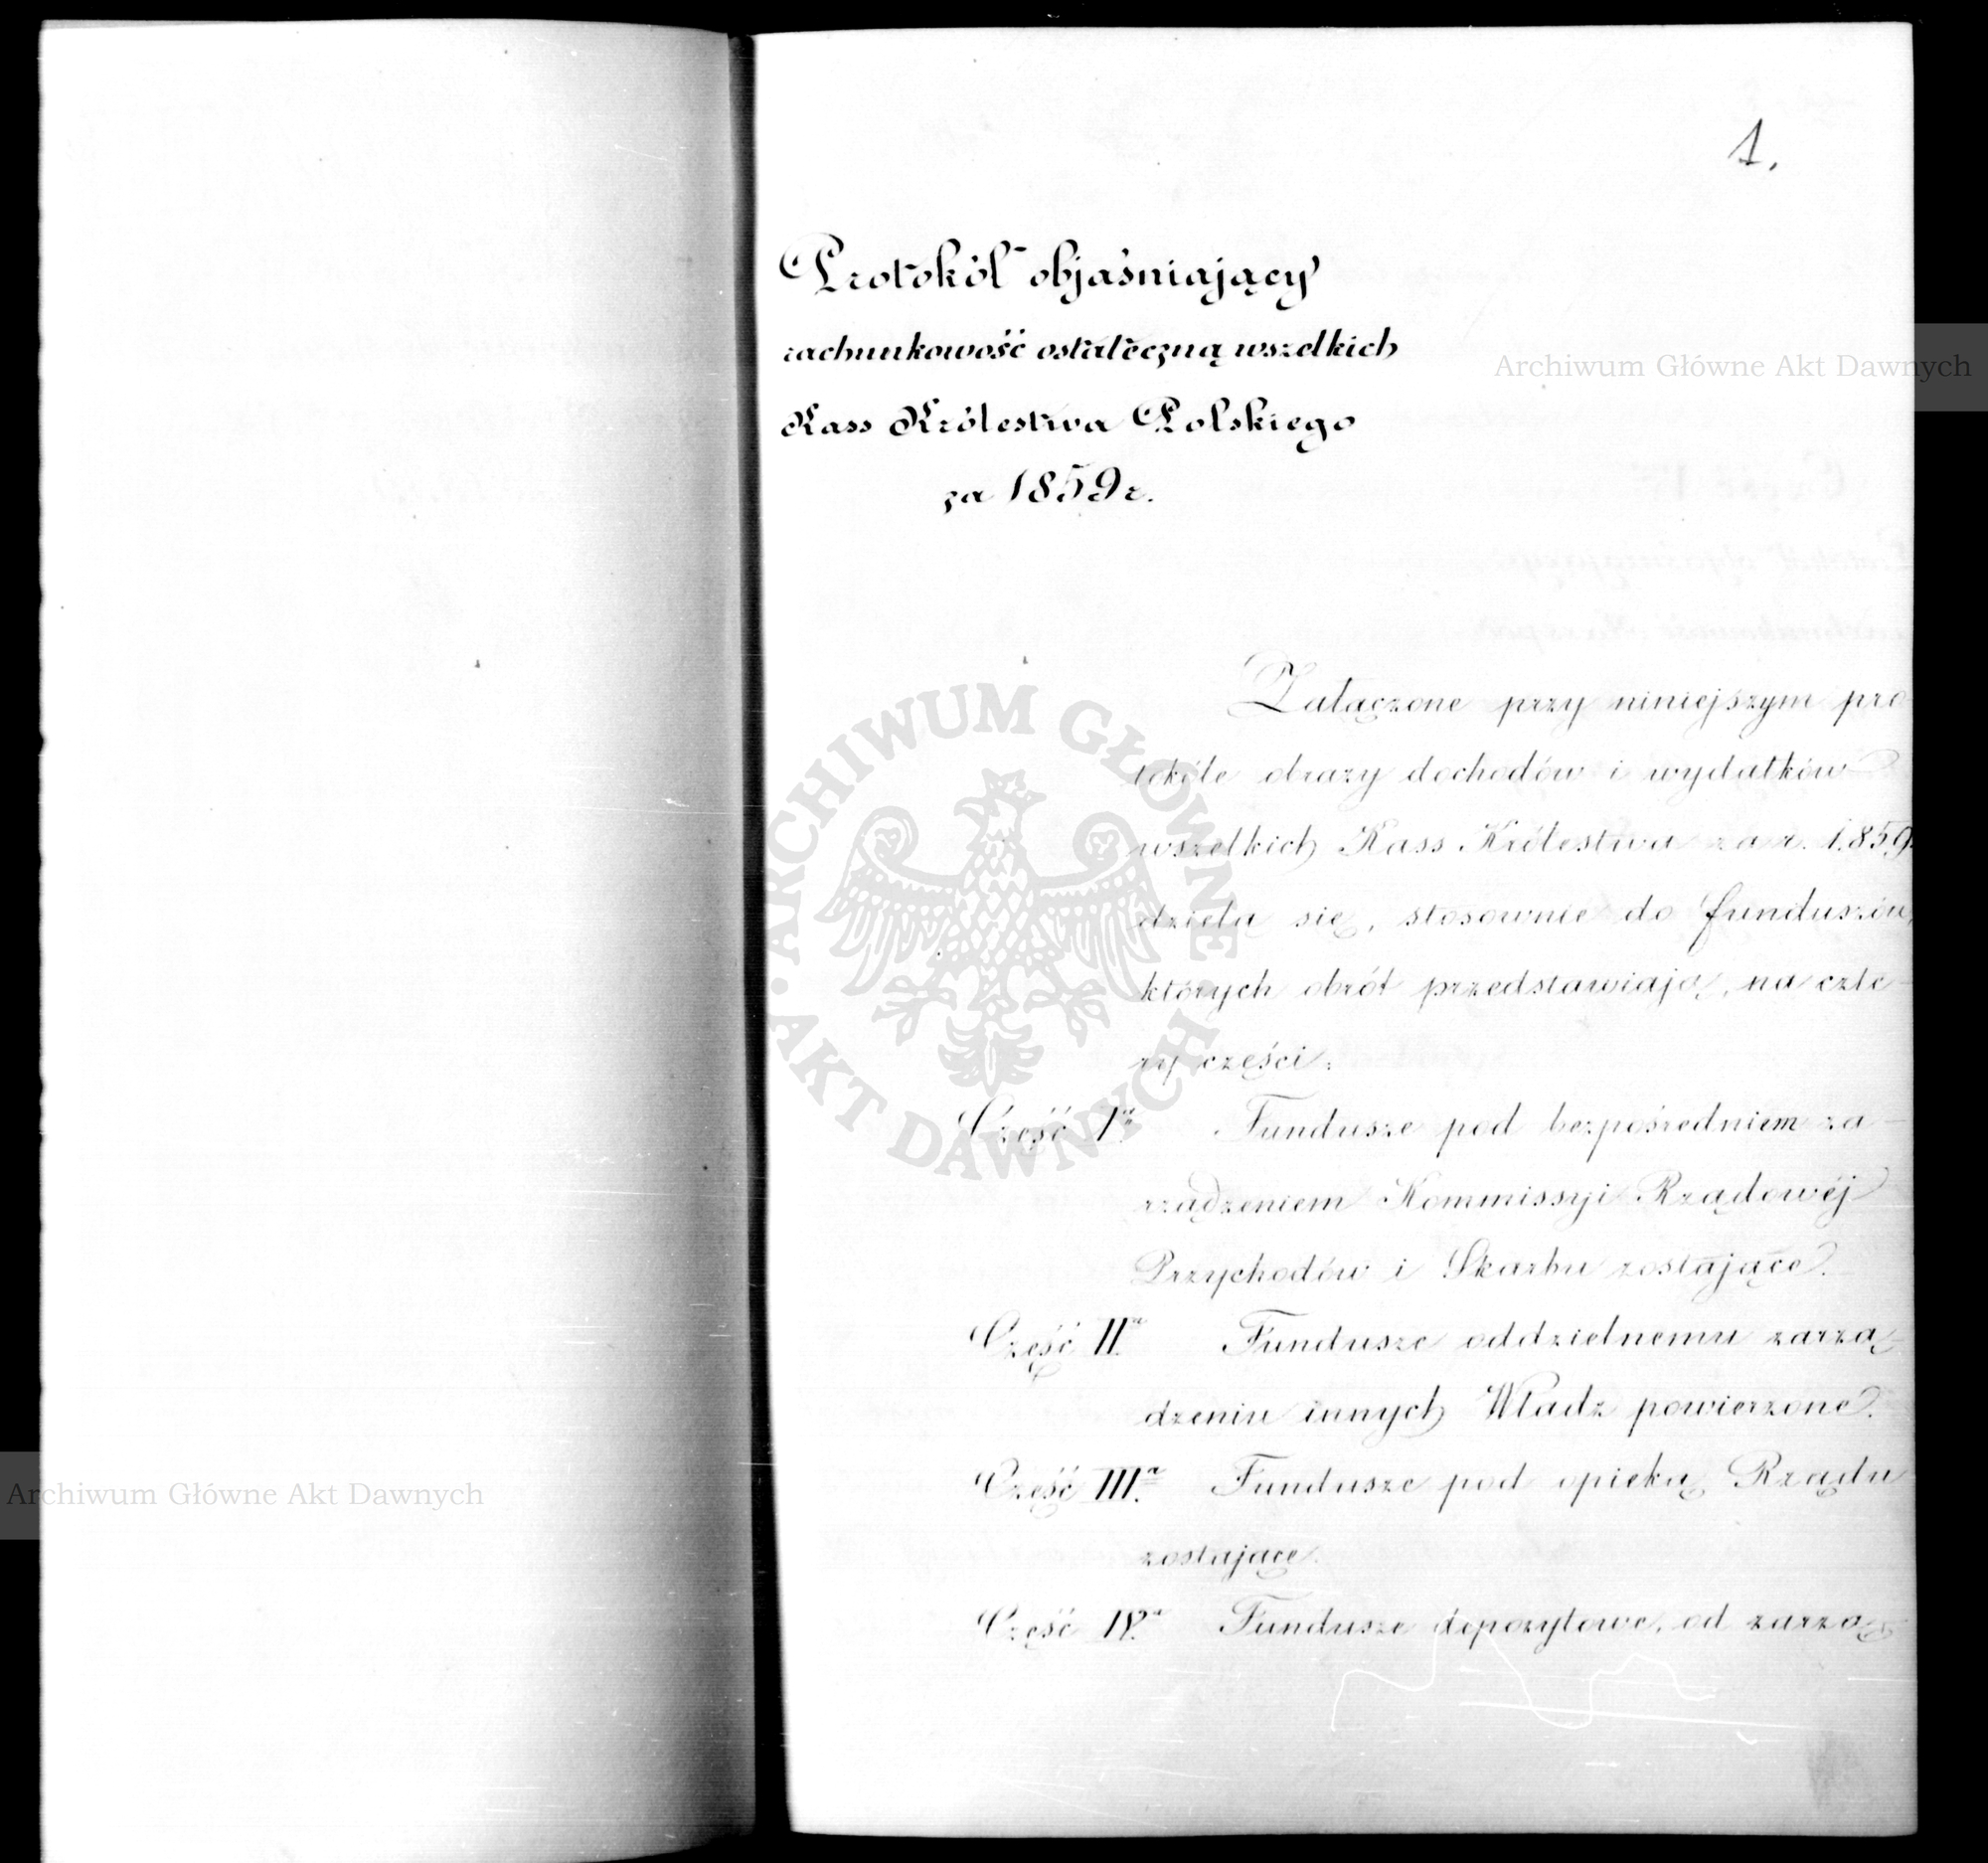 1.
Protokół objaśniający
rachunkowość ostateczną wszelkich
Kass Królestwa Polskiego
za 1859 r.
Załączone przy niniejszym pro
tokóle obrazy dochodów i wydatków
wszelkich Kass Królestwa za r. 1859.
dzielą się, stosownie do funduszów,
których obrót przedstawiają, na czte-
ry części:
Część Iª. Fundusze pod bezpośredniem za-
rządzeniem Kommissyi Rządowéj
Przychodów i Skarbu zostające.
Część IIª. Fundusze oddzielnemu zarzą-
dzeniu innych Władz powierzone.
Część IIIª. Fundusze pod opieką Rządu
zostające.
Część IVª. Fundusze depozytowe, od zarzą-
Archiwum Główne Akt Dawnych
Archiwum Główne Akt Dawnych
ARCHIWUM GŁÓWNE
AKT DAWNYCH